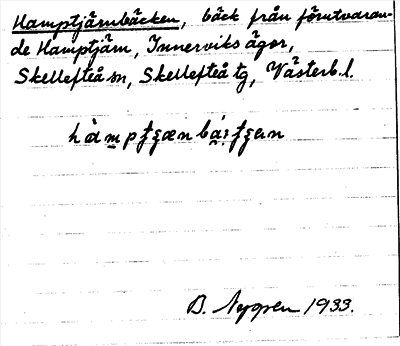 Hamptjärnbäcken, bäck från förutvaran-
de Hamptjärn, Innerviks ägor,
Skellefteå sn, Skellefteå tg, Västerb. l.
B. Nygren 1933.